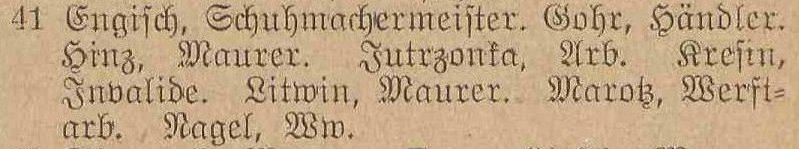 41 Engisch, Schuhmachermeister. Gohr, Händler.
Hinz, Maurer. Jutrzonka, Arb. Kresin,
Invalide. Litwin, Maurer. Marotz, Werft-
arb. Nagel, Ww.